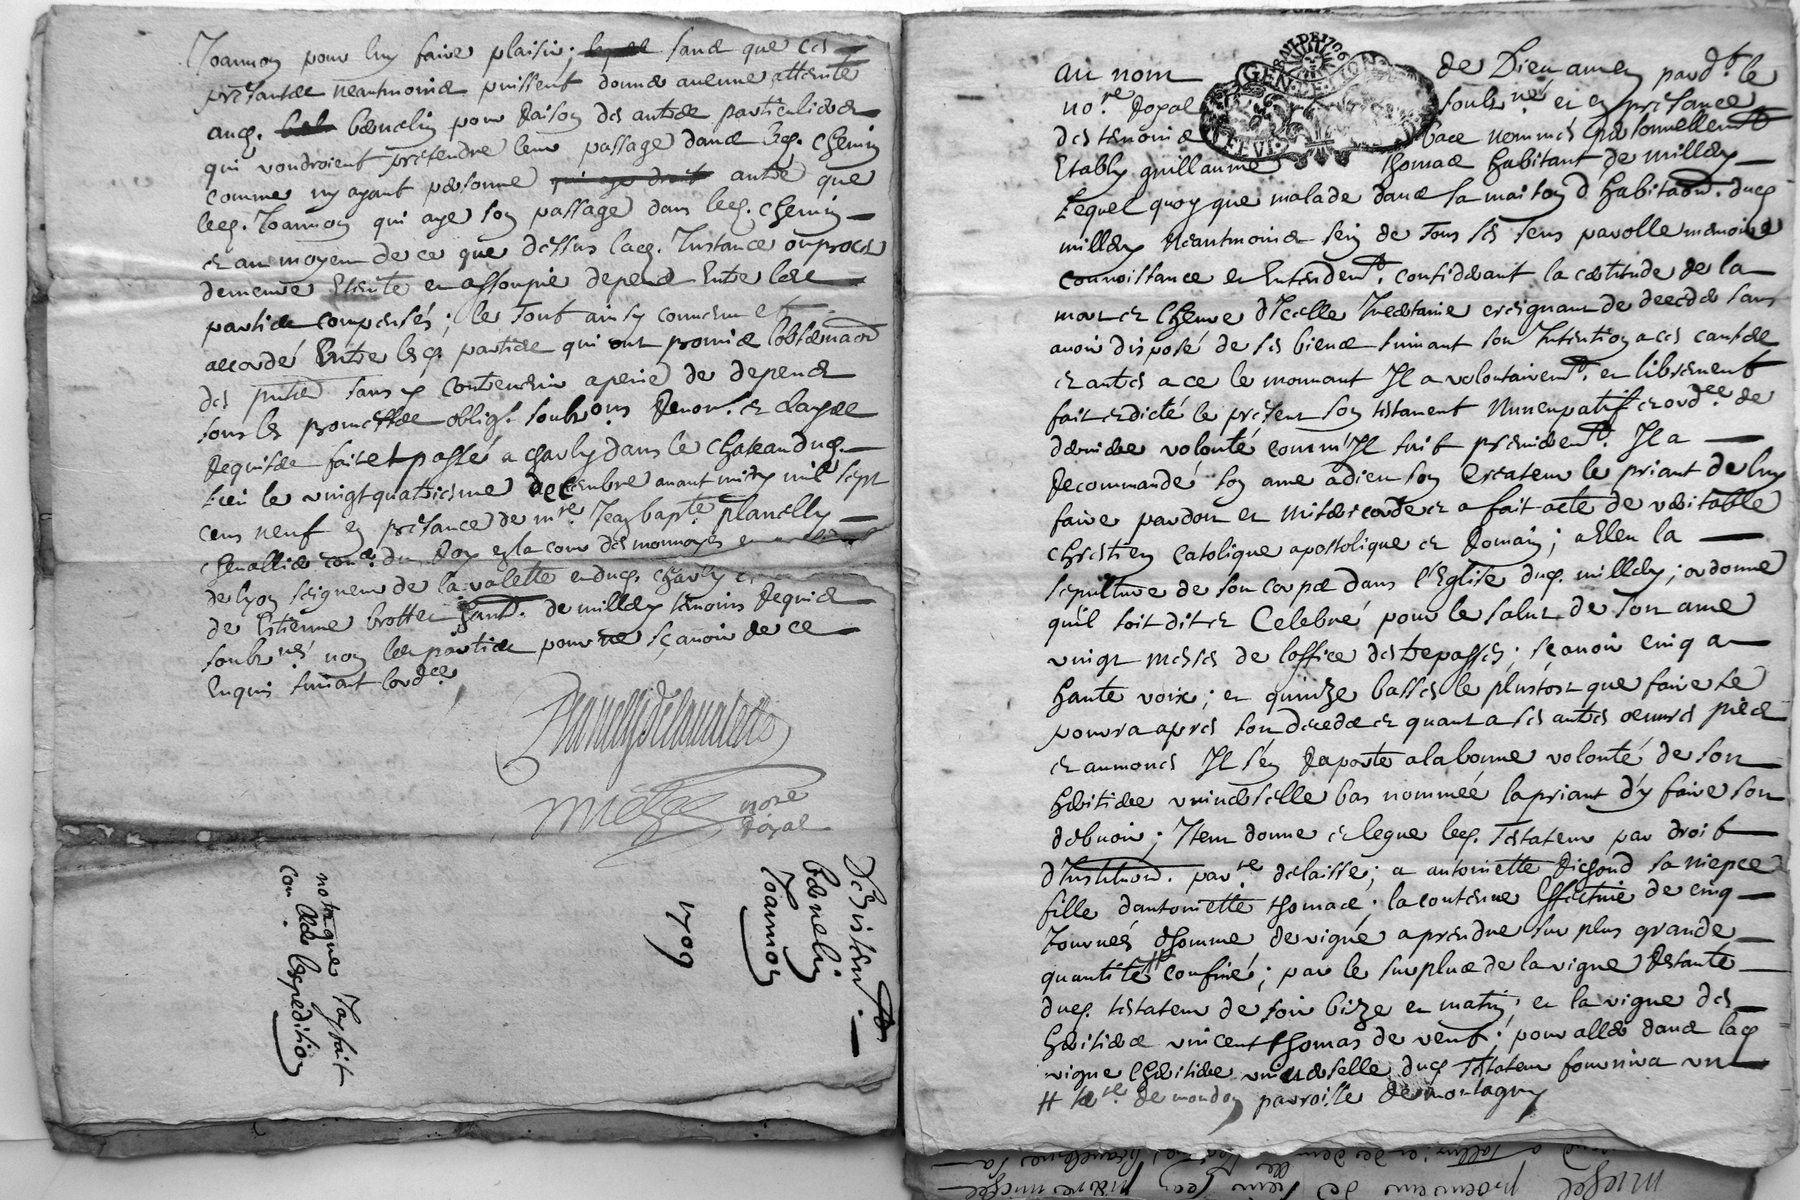 Joannon pour luy faire plaisir; sans que ces
presantes neantmoins puissent donner aucune atteinte
aud. benelin pour raison des autres particuliers
qui voudroient pretendre leur passage dans led. chemin
comme ny ayant personne qui aye droit autre que
led. Joannon qui aye son passage dans led. chemin
et au moyen de ce que dessus lad. Instance ou proces
demeure Eteinte et assoupie depend Entre les
parties compensés; le tout ainsy convenu et
accordé Entre lesd. parties qui ont promis lobservaon
des pntes sans y contrevenir a peine de depend
sous les promesses oblig. soubmons Renon. et clauzes
Requises fait et passé a charly dans le chateau dud.
lieu le vingt quatriesme decembre avant midy mil sept
cens neuf en presance de mre. Jean bapte. planelly
chevallier coner. du Roy en la cour des monnoyes
de lyon seigneur de la valette et dud. charly et
de Estienne brottet habt. de millery temoins Requis
soubznés non les parties pour ne sçavoir de ce
Enquis suivant lordce.
Planelly de lavalette
nore
Royal
Desistemt.
benelin
Joannon
1709
nota que Jay fait
lexpedition
au nom de Dieu amen pardt. le
nore Royal soubzné et en presance
des temoins bas nommés personnellemt
Etably guillaume thomas habitant de millery
Lequel quoy que malade dans sa maison dhabitaon. dud.
millery neantmoins sein de tous ses sens parolle memoire
connoissance et Entendemt. considerant la certitude de la
mort et lheure dIcelle Incertaine creignant de deceder sans
avoir disposé de ses biens suivant son Intention a ces causes
et autres a ce le mouvant Il a volontairemt. et librement
fait et dicté le present son testament Nuncupatif et ordce de
derniere volonté comm'Il suit premieremt. Il a
Recommandé son ame a dieu son Createur le priant de luy
faire pardon et misericorde et a fait acte de veritable
chrestien catolique apostolique et Romain; a Eleu la
sepulture de son corps dans l'Eglise dud. millery; ordonne
qu'il soit dit et Celebré pour le salut de son ame
vingt messes de loffice des trepassés; sçavoir cinq a
haute voix; et quinze basses le plustost que faire se
pourra apres son deceds et quant a ses autres oeuvres pies
et aumones Il s'en Raporte a la bonne volonté de son
heritiere universelle bas nommée la priant d'y faire son
debvoir; Item donne et legue led. Testateur par droit
dInstituon. parre. delaisse; a antoinette Richond sa niepce
fille dantoinette thomas; la contenue Effective de cinq
Journeés dhomme de vigne a prendre sur plus grande
quantité # confiné; par le surplus de la vigne Restante
dud. testateur de soir bize et matin; et la vigne des
heritiers vincent thomas de vent; pour aller dans lad.
vigne lheritiere universelle dud. Testateur fournira un
# de mondon parroisse de montagny